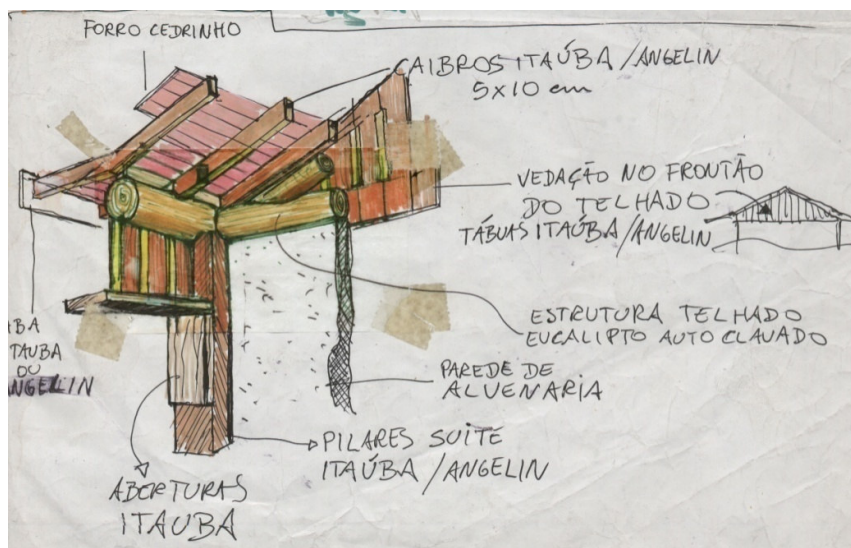 FORRO CEDRINHO
CAIBROS ITAÚBA/ANGELIN
5x10 cm
VEDAÇÃO NO FRONTÃO
DO TELHADO
TÁBUAS ITAÚBA/ANGELIN
ESTRUTURA TELHADO
EUCALIPTO AUTO CLAVADO
PAREDE DE
ALVENARIA
PILARES SUITE
ITAÚBA/ANGELIN
ABERTURAS
ITAUBA
OU
ANGELIN